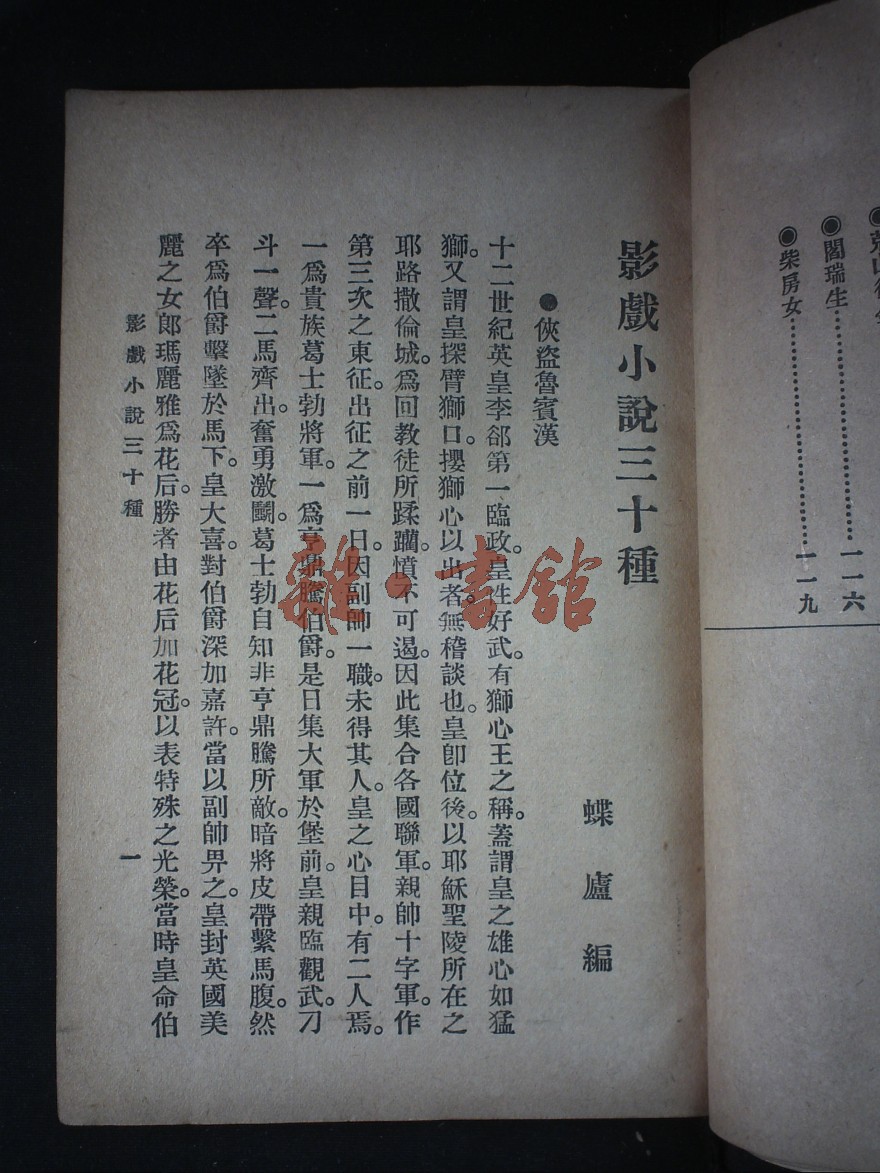 影戲小說三十種
蝶廬編
●俠盜魯賓漢
十二世紀英皇李郤第一臨政。皇性好武。有獅心王之稱。蓋謂皇之雄心如猛
獅。又謂皇探臂獅口。攖獅心以出者。無稽談也。皇卽位後。以耶穌聖陵所在之
耶路撒倫城。爲回教徒所蹂躪。憤不可遏。因此集合各國聯軍。親帥十字軍。作
第三次之東征。出征之前一日。因副帥一職。未得其人。皇之心目中。有二人焉。
一爲貴族葛士勃將軍。一爲亨鼎騰伯爵。是日集大軍於堡前。皇親臨觀武。刀
斗一聲。二馬齊出。奮勇激鬭。葛士勃自知非亨鼎騰所敵。暗將皮帶繫馬腹。然
卒爲伯爵擊墜於馬下。皇大喜。對伯爵深加嘉許。當以副帥畀之。皇封英國美
麗之女郎瑪麗雅爲花后。勝者由花后加花冠。以表特殊之光榮。當時皇命伯
影戲小說三十種
一
◉閻瑞生…………一一六
◉柴房女…………一一九
雜·書館